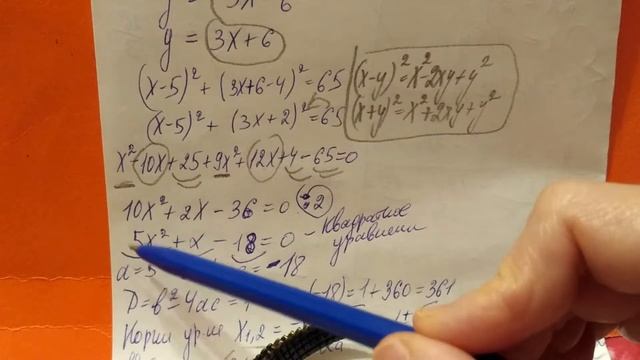 y = 3x+6
(x-5)² + (3x+6-4)² = 65
(x-5)² + (3x+2)² = 65
(x-y)² = x²-2xy+y²
(x+y)² = x²+2xy+y²
x²-10x+25+9x²+12x+4-65=0
10x²+2x-36=0 :2
5x²+x-18=0 - Квадратное
уравнение
a=5 -18
D=b²-4ac=1 (-18)=1+360=361
Корни ур-ие x₁,₂ =